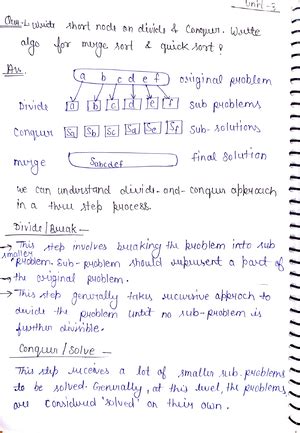 Unit-3
Que-1 Write short node on divide & Conquer. Write
algo for merge sort & quick sort?
Ans.
a b c d e f original problem
Divide a b c d e f Sub problems
Conquer Sa Sb Sc Sd Se Sf Sub-solutions
merge Sabcdef final solution
we can understand divide-and-conquer approach
in a three step process.
Divide/Break -
→ This step involves breaking the problem into sub
smaller
problem. Sub-problem should represent a part of
→ the original problem.
→ This step generally takes recursive approch to
divide the problem until no sub-problem is
further divisible.
Conquer/Solve -
This step receives a lot of smaller sub-problems
to be solved. Generally, at this level, the problems
are considered 'solved' on their own.